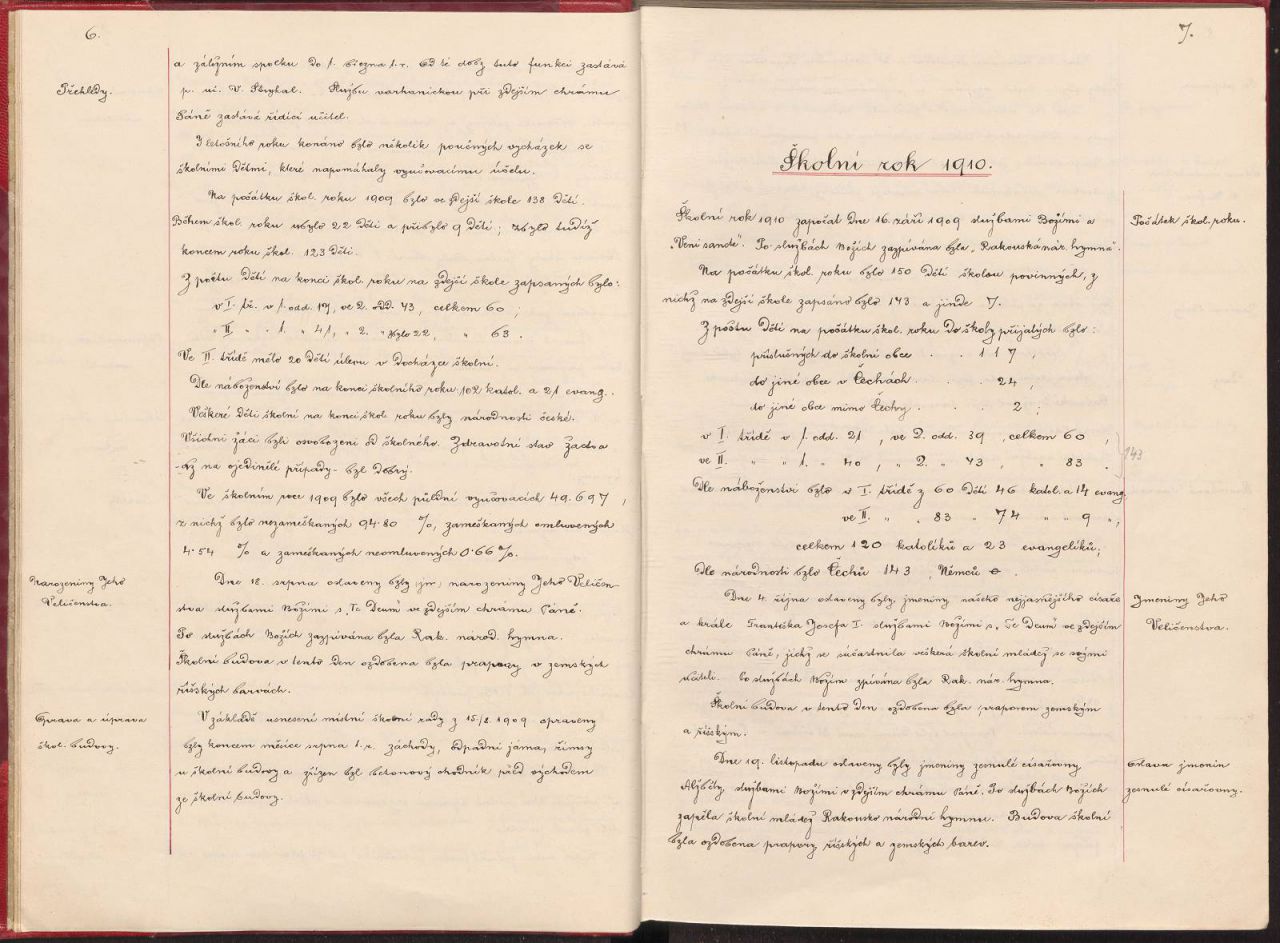 6.
a záložním spolku do 1. března t. r. Od té doby tuto funkci zastává
Přehledy.
p. uč. V. Službu varhanickou při zdejším chrámu
Páně zastává řídící učitel.
I letošního roku konáno bylo několik poučných vycházek se
školními dětmi, které napomáhaly vyučovacímu účelu.
Na počátku škol. roku 1909 bylo ve zdejší škole 138 dětí.
Během škol. roku ubylo 22 dětí a přibylo 9 dětí; zbylo tudíž
koncem roku škol. 123 dětí.
Z počtu dětí na konci škol. roku na zdejší škole zapsaných bylo:
v I. tř. v 1. odd. 17, ve 2. odd. 43, celkem 60;
" II " " 1. " 41, " 2. " bylo 22, " 63.
Ve II. třídě mělo 20 dětí úlevu v docházce školní.
Dle náboženství bylo na konci školního roku 102 katol. a 21 evang.
Veškeré děti školní na konci škol. roku byly národnosti české.
Všichni žáci byli osvobozeni od školného. Zdravotní stav žactva
- až na ojedinělé případy - byl dobrý.
Ve školním roce 1909 bylo všech půldní vyučovacích 49.697,
z nichž bylo nezameškaných 94.80 %, zameškaných omluvených
4.54 % a zameškaných neomluvených 0.66 %.
Narozeniny Jeho
Veličenstva.
Dne 18. srpna oslaveny byly narozeniny Jeho Veličen-
stva službami Božími s „Te Deum" ve zdejším chrámu Páně.
Po službách Božích zazpívána byla Rak. národ. hymna.
Školní budova v tento den ozdobena byla prapory v zemských
říšských barvách.
Oprava a úprava
škol. budovy.
V základě usnesení místní školní rady z 15./2. 1909 opraveny
byly koncem měsíce srpna t. r. záchody, odpadní jáma, římsy
u školní budovy a zřízen byl betonový chodník před východem
ze školní budovy.
7.
Školní rok 1910.
Školní rok 1910 započat dne 16. září 1909 službami Božími a
Počátek škol. roku.
„Veni sante". Po službách Božích zazpívána byla „Rakouská nár. hymna".
Na počátku škol. roku bylo 150 dětí školou povinných, z
nichž na zdejší škole zapsáno bylo 143 a jinde 7.
Z počtu dětí na počátku škol. roku do školy přijatých bylo:
příslušných do školní obce . . 117,
do jiné obce v Čechách . . 24,
do jiné obce mimo Čechy . . 2;
v I. třídě v 1. odd. 21, ve 2. odd. 39, celkem 60,
143
ve II. " " 1. " 40, " 2. " 43, " 83.
Dle náboženství bylo v I. třídě z 60 dětí 46 katol. a 14 evang.
ve II. " " 83 " 74 " " 9 ",
celkem 120 katolíků a 23 evangelíků;
Dle národnosti bylo Čechů 143, Němců 0.
Dne 4. října oslaveny byly jmeniny našeho nejjasnějšího císaře
Jmeniny Jeho
Veličenstva.
a krále Františka Josefa I. službami Božími s „Te Deum" ve zdejším
chrámu Páně, jichž se súčastnila veškerá školní mládež se svými
učiteli. Po službách Božím zpívána byla Rak. nár. hymna.
Školní budova v tento den ozdobena byla praporem zemským
a říšským.
Dne 19. listopadu oslaveny byly jmeniny zesnulé císařovny
Oslava jmenin
zesnulé císařovny.
Alžběty, službami Božími v zdejším chrámu Páně. Po službách Božích
zapěla školní mládež Rakousko národní hymnu. Budova školní
byla ozdobena prapory říšských a zemských barev.